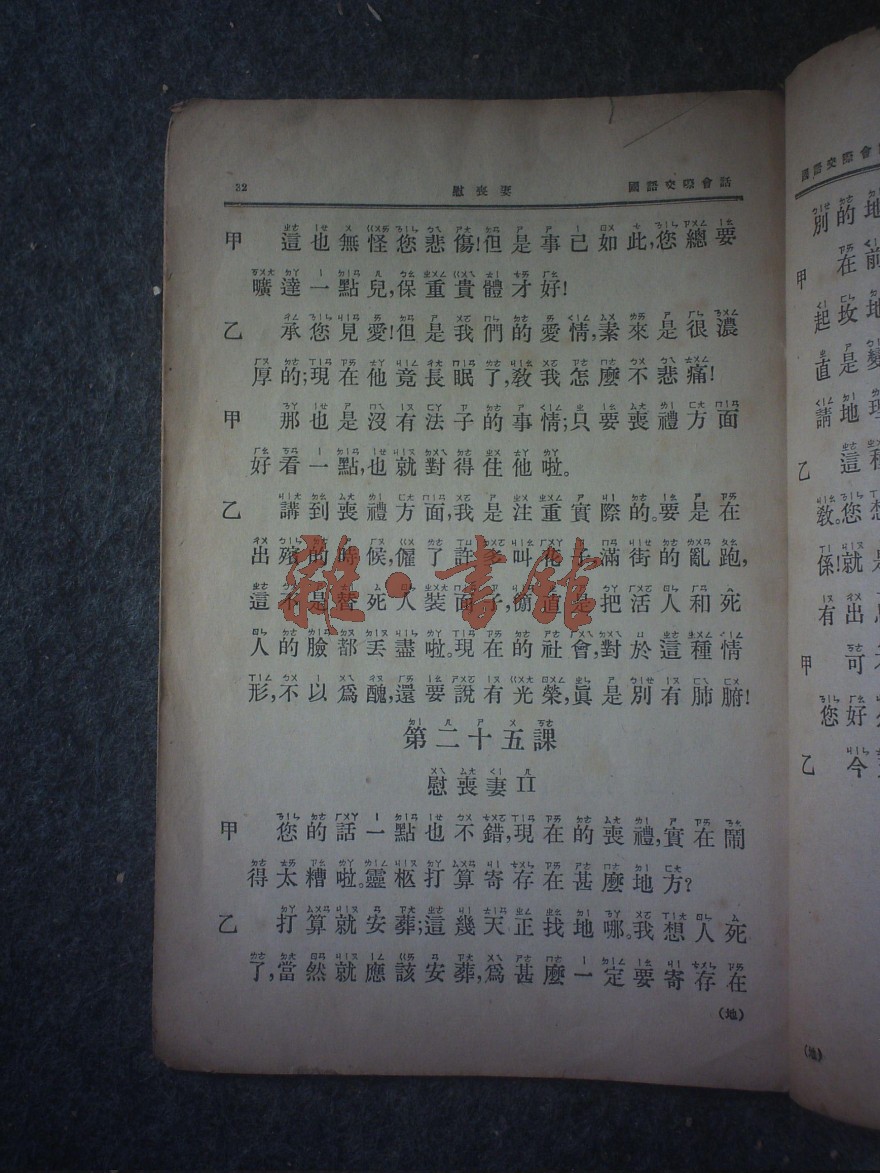 32 慰喪妻 國語交際會話
甲 這也無怪您悲傷!但是事已如此,您總要
曠達一點兒,保重貴體才好!
乙 承您見愛!但是我們的愛情,素來是很濃
厚的;現在他竟長眠了,敎我怎麼不悲痛!
甲 那也是沒有法子的事情;只要喪禮方面
好看一點,也就對得住他啦。
乙 講到喪禮方面,我是注重實際的。要是在
出殯的時候,僱了許多叫花子,滿街的亂跑,
這不是替死人裝面子,簡直是把活人和死
人的臉都丟盡啦。現在的社會,對於這種情
形,不以爲醜,還要說有光榮,眞是別有肺腑!
第二十五課
慰喪妻 II
甲 您的話一點也不錯,現在的喪禮,實在鬧
得太糟啦。靈柩打算寄存在甚麼地方?
乙 打算就安葬;這幾天正找地哪。我想人死
了,當然就應該安葬,爲甚麼一定要寄存在
(地)
雜·書館
國語交際會話
別的地
甲 在前
起坟地
直是變
請地理
乙 這種
敎。您想
係!就是
有出
甲 可
您好
乙 今
(地)